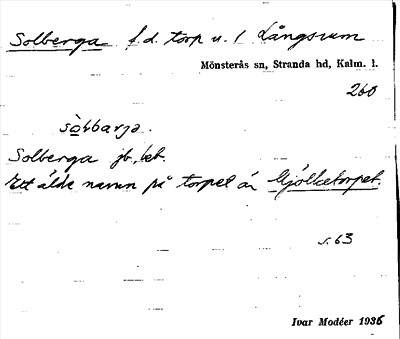 Solberga f.d. torp u. 1 Långsrum
Mönsterås sn, Stranda hd, Kalm. l.
260
sòbbarja.
Solberga jb, bet.
Ett äldre namn på torpet är Mjölketorpet.
s. 63
Ivar Modéer 1936